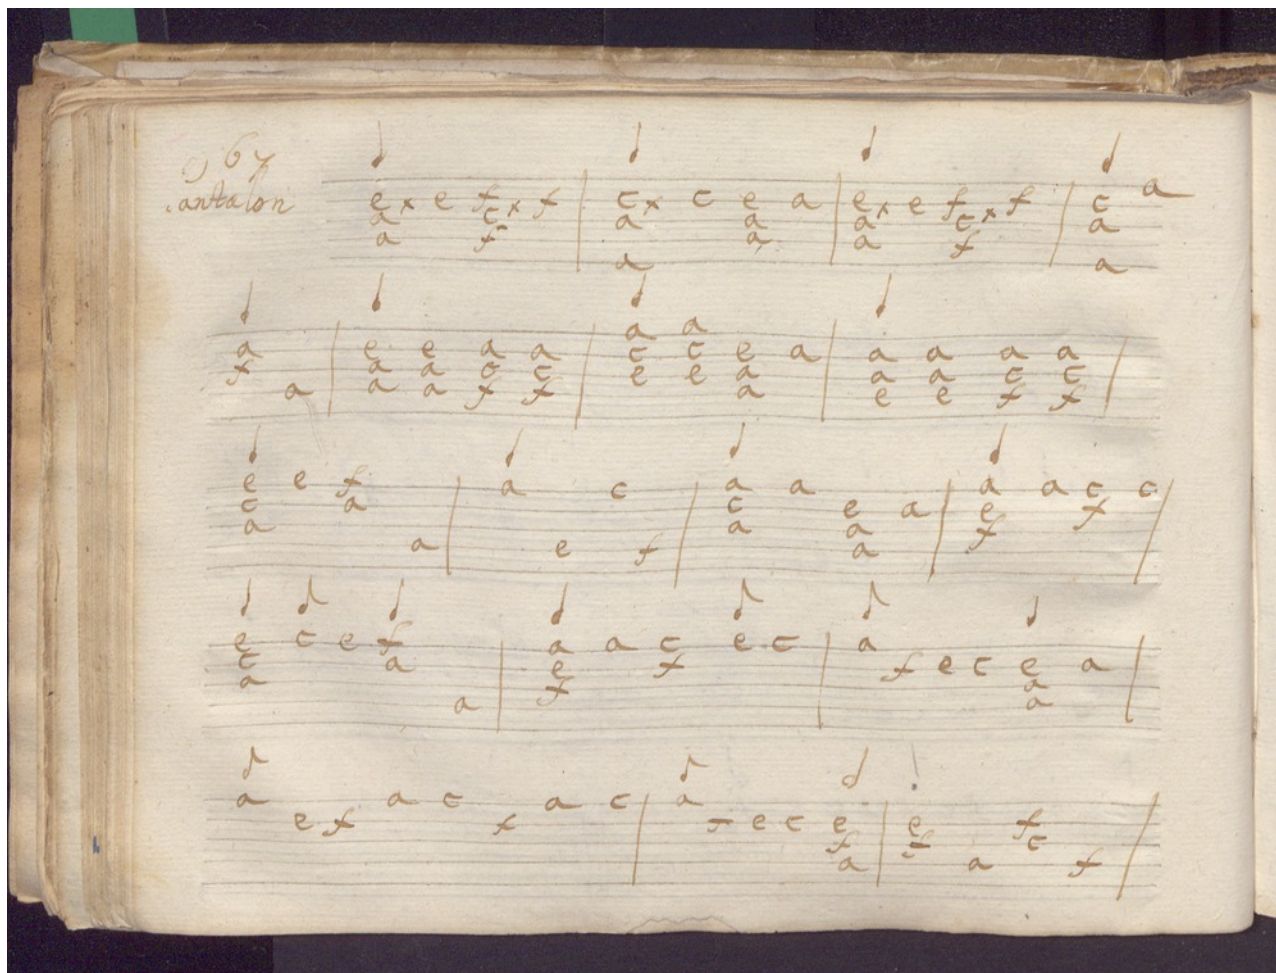 967
antalon
e x e f x f c x c e a e x e f x f c a
a c a a a c a
a f a a f
a a
a e e a a a a a a a a
f a a c c c c e a a a c c
a a a f f e e a e e f f
e e f a c a a a a c c
c a c e a e f
a a a f
a e f a
e c e f a a c e c a
c a e f f e c e a
a f a
a a
a a c a c a
e f f f e c e e f
f f c
a a f